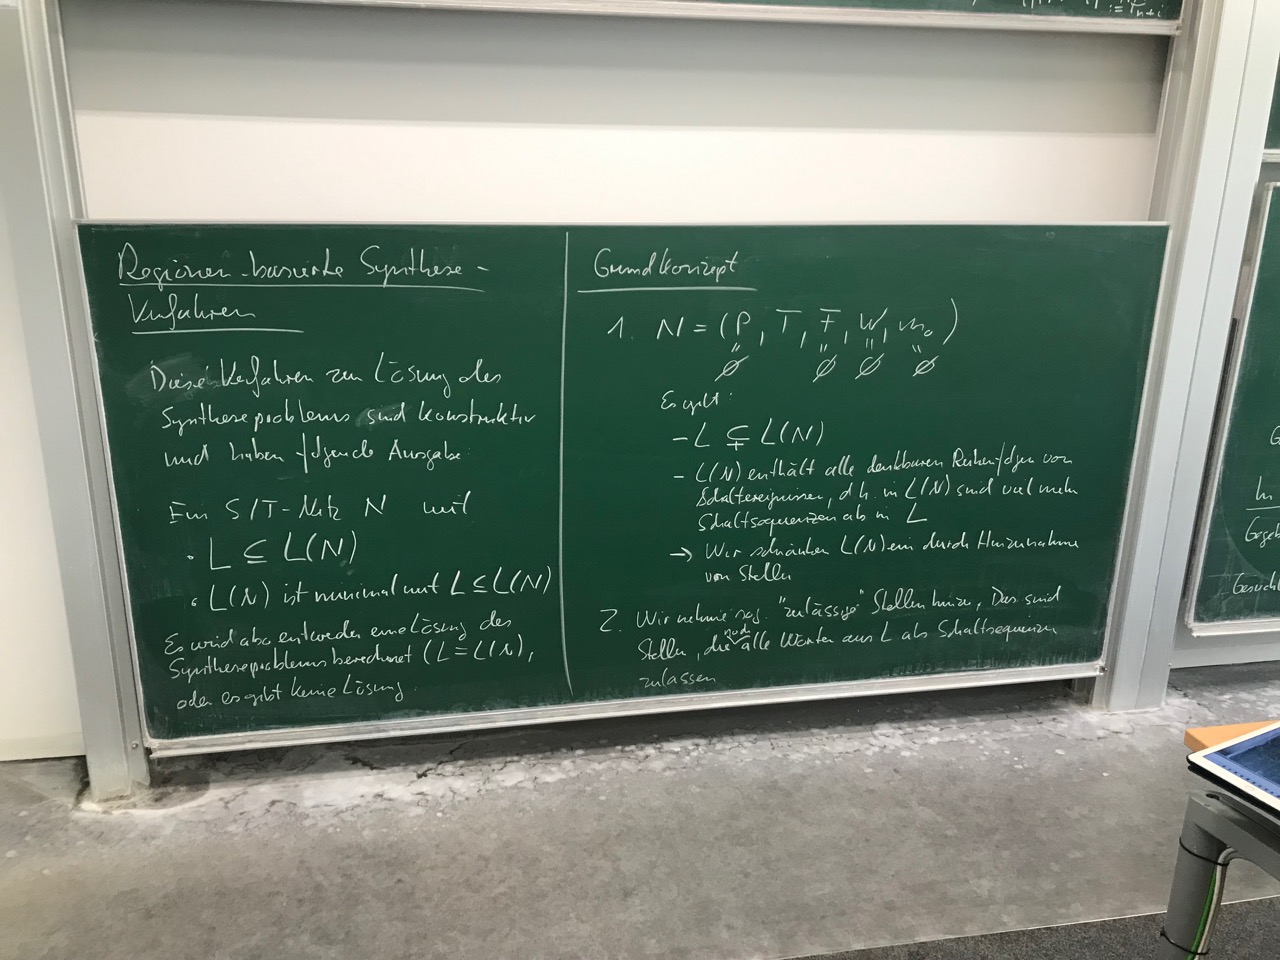 := T_{n+i}
Regionen-basierte Synthese-
Verfahren
Diese Verfahren zur Lösung des
Syntheseproblems sind konstruktiv
und haben folgende Ausgabe:
Ein S/T-Netz N mit
• L ⊆ L(N)
• L(N) ist minimal mit L ⊆ L(N)
Es wird also entweder eine Lösung des
Syntheseproblems berechnet (L = L(N),
oder es gibt keine Lösung.
Grundkonzept
1. N = (P, T, F, W, m₀)
= ∅ = ∅ = ∅ = ∅
Es gilt:
- L ⊊ L(N)
- L(N) enthält alle denkbaren Reihenfolgen von
Schaltereignissen, d.h. in L(N) sind viel mehr
Schaltsequenzen als in L
→ Wir schränken L(N) ein durch Hinzunahme
von Stellen
2. Wir nehme sog. "zulässige" Stellen hinzu. Das sind
Stellen, die noch alle Wörter aus L als Schaltsequenzen
zulassen
G
In
Gegeb
Gesucht